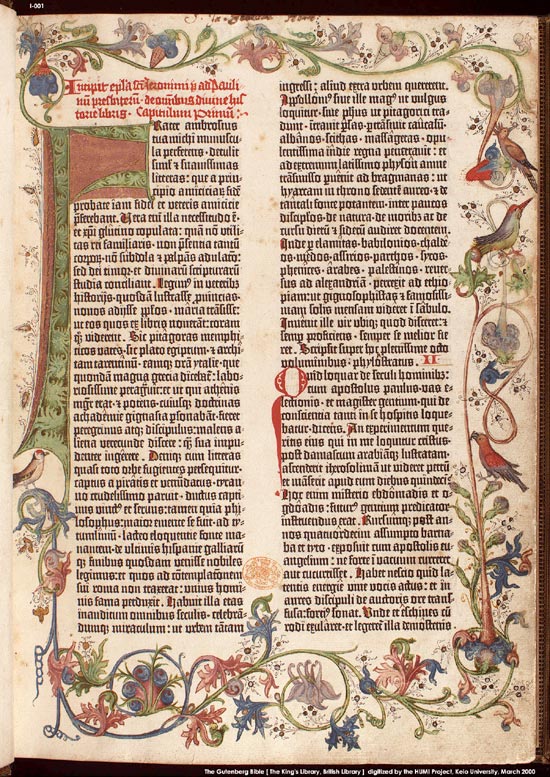 I-001
Incipit epl̄a sc̄i iheronimi ad Pauli
nū presbiterū: de om̄ibus divine hys
torie libris. Capitulum Primū.
Frater ambrosius
tua michi munuscu
la preferens · detulit
simul et suavissimas
litteras: que a prin
cipio amicicie fidē
probate iam fidei et veteris amicicie
p̄ferebant. Vera enī illa necessitudo ē ·
et xp̄i glutino copulata: quā nō utili
tas rei familiaris · non p̄sentia tantū
corporū · nō subdola et palpās adulatio:
sed dei timor · et divinarū scripturarū
studia conciliant. Legim⁹ in veteribz
historijs · quosdā lustrasse provincias ·
novos adijsse pp̄los · maria trāsisse:
ut eos quos ex libris noverāt: coram
qz viderent. Sic pitagoras memphi
ticos vates · sic plato egiptum · et archi
tam tarentinū · eamqz orā ytalie · que
quondā magna grecia diceba╀: labo
riosissime peragravit: et ut qui athenis
mgr̄ erat · et potens · cuiusqz doctrinas
achademie gignasia p̄sonabāt · fieret
peregrinus atqz discipulus: malens a
liena verecunde discere: qz̄ sua impu
denter ingerere. Deniqz cum litteras
quasi toto orbe fugientes persequitur ·
captus a piratis et venūdatus · tyran
no crudelissimo paruit · ductus capti
vus vinct⁹ et servus: tamen quia phi
losophus: maior emente se fuit · ad ty
tumlivium · lacteo eloquentie fonte ma
nantem · de ultimis hispanie galliarū
qz finibus · quosdam venisse nobiles
legimus: et quos ad cōtemplationem
sui roma non traxerat: unius homi
nis fama perduxit. Habuit illa etas
inauditum omnibus seculis · celebrā
dumqz miraculum: ut urbem tātam
ingressi: aliud extra urbem quererent.
Apollonius sive ille mag⁹ ut vulgus
loquitur · sive ph̄us ut pitagorici tra
dunt · intravit p̄sas · p̄trāsivit caucasū ·
albānos · scithas · massagetas · opu
lentissima indie regna penetravit: et
ad extremum latissimo physon amne
trāsmisso p̄venit ad bragmanas: ut
hyarcam in throno sedentē aureo · et de
tantali fonte potantem · inter paucos
discipulos · de natura · de moribz ac de
cursu dierū et siderū audiret docentem.
Inde p̄ elamitas · babilonios · chalde
os · medos · assirios · parthos · syros ·
phenices · arabes · palestinos · rever
sus ad alexandriā · perrexit ad ethio
piam: ut gignosophistas et famosissi
mam solis mensam videret ī sabulo.
Invenit ille vir ubiqz quod disceret: et
semp̄ proficiens · semper se melior fie
ret. Scripsit super hoc plenissime octo
voluminibus · phylostratus. II
Quid loquar de seculi hominibz:
cum apostolus paulus · vas e
lectionis · et magister gentium · qui de
conscientia tanti in se hospitis loque
batur · dicens. An experimentum que
ritis eius qui in me loquitur cristus:
post damascum arabiāqz lustratam:
ascenderit iherosolimā ut videret petrū
et māserit apud eum diebus quindecī.
Hoc enim misterio ebdomadis et o
gdoadis: futur⁹ gentium predicator
instruendus erat. Rursumqz post an
nos quatuordecim assumpto barna
ba et tyto · exposuit cum apostolis eu
angelium: ne forte ī vacuum curreret
aut cucurrisset. Habet nescio quid la
tentis energie vive vocis actus: et in
aures discipuli de auctoris ore trans
fusa: forci⁹ sonat. Unde et eschines cū
rodi exularet · et legeretur illa demostenis
The Gutenberg Bible [ The King's Library, British Library ] digitized by the HUMI Project, Keio University, March 2000